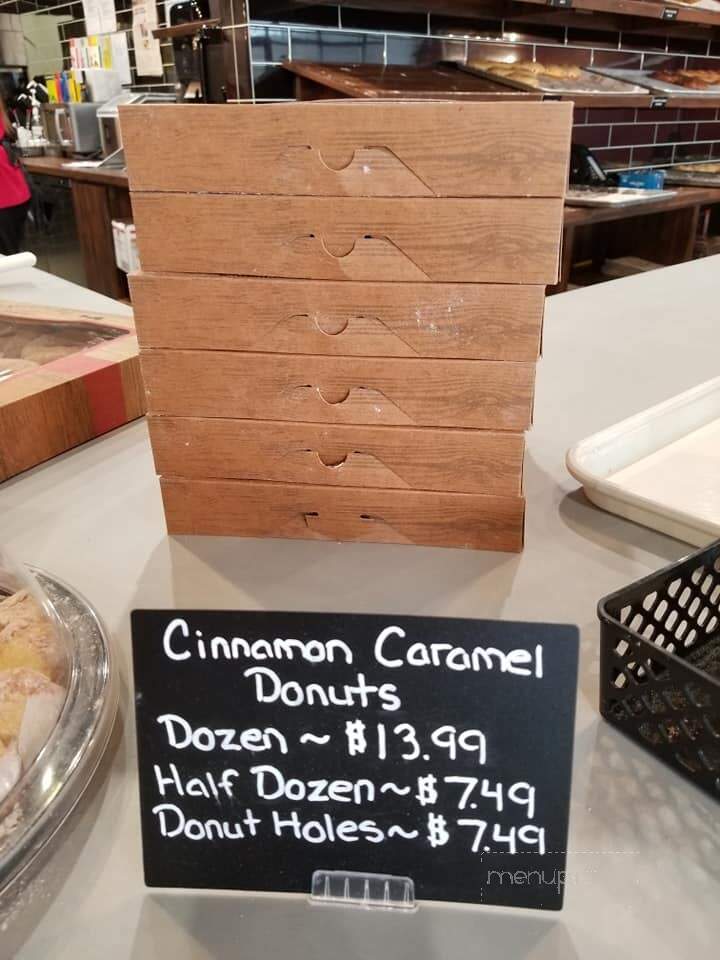 Cinnamon Caramel
Donuts
Dozen ~ $13.99
Half Dozen ~ $7.49
Donut Holes ~ $7.49